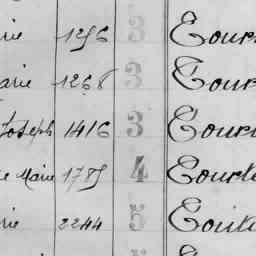 rie 1256 3 Cour
arie 1268 3 Cour
Joseph 1416 3 Cour
e Marie 1785 4 Courte
rie 2244 5